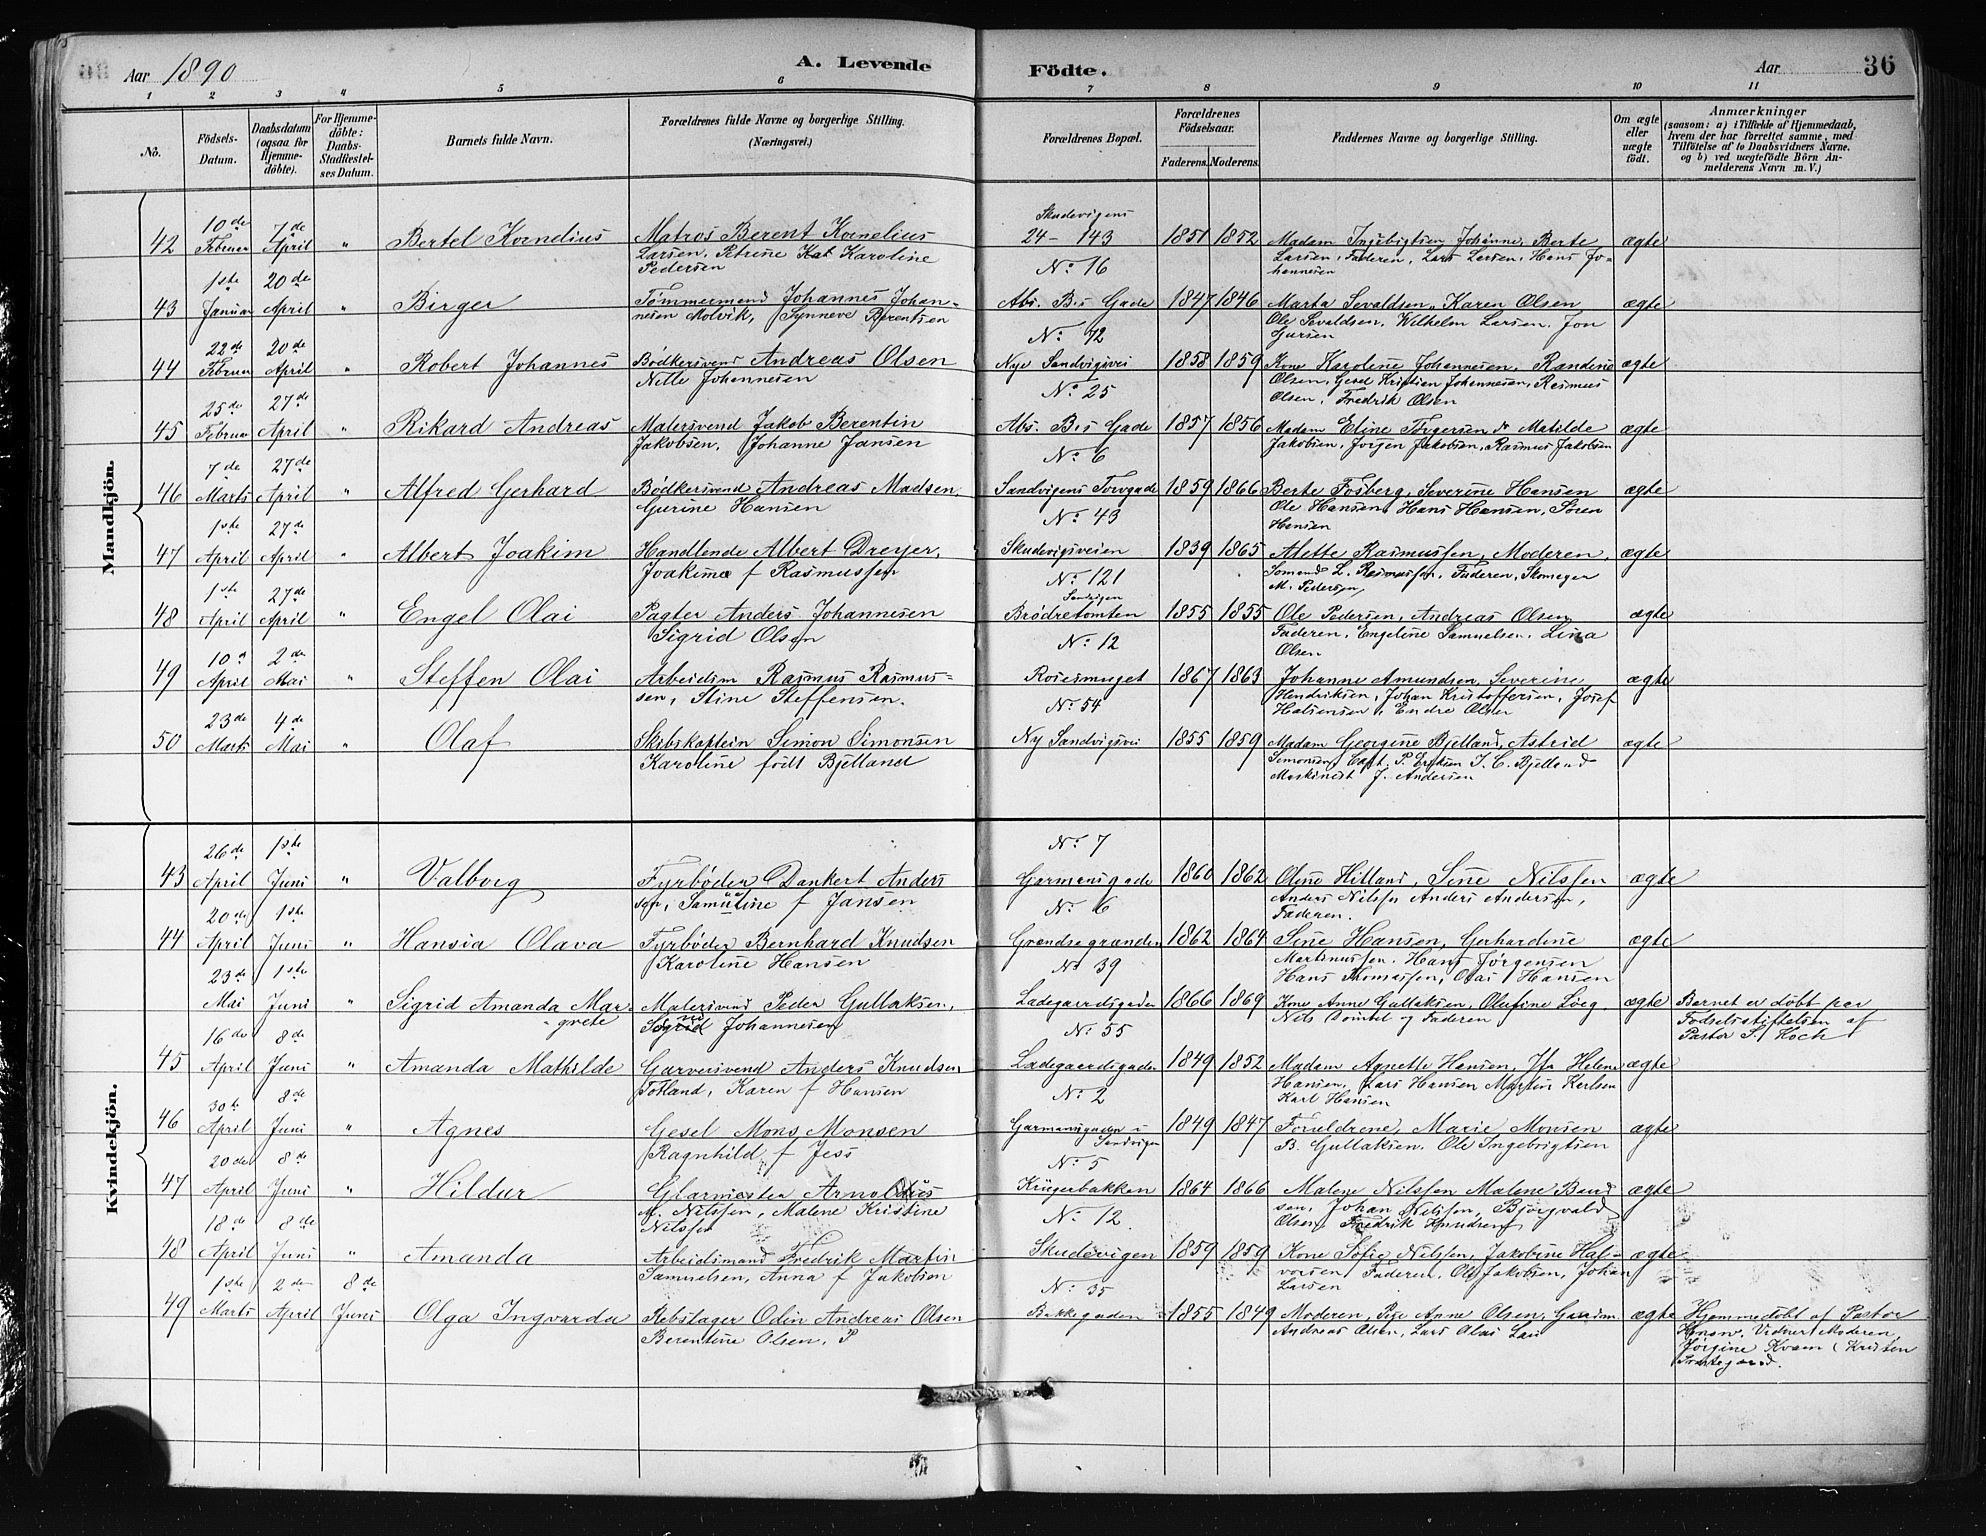 Aar 1890
A. Levende
Födte.
Aar
36
1 2 3 4 5 6 7 8 9 10 11
No.
Födsels-
Datum.
Daabsdatum
(ogsaa for
Hjemme-
döbte).
For Hjemme-
döbte:
Daabs-
Stadfæstel-
ses Datum.
Barnets fulde Navn.
Forældrenes fulde Navne og borgerlige Stilling.
(Næringsvei.)
Forældrenes Bopæl.
Forældrenes
Födselsaar.
Faderens. Moderens.
Faddernes Navne og borgerlige Stilling.
Om ægte
eller
uægte
födt.
Anmærkninger
(saasom: a) i Tilfælde af Hjemmedaab,
hvem der har forrettet samme, med
Tilföielse af to Daabsvidners Navne.
og b) ved uægtefödte Börn An-
melderens Navn m. V.)
Mandkjön.
10de 7de Skudevigens
42 Februar April " Bertel Kornelius Matros Berent Kornelius 24-143 1851 1852 Madam Ingebrigtsen Johanne, Berte ægte
Larsen, Petrine Kat Karoline Larsen, Faderen, Lars Larsen, Hans Jo-
Pedersen hannesen
1ste 20de No 16
43 Januar April " Birger Tømmermand Johannes Johan- Abs. B.s Gade 1847 1846 Marta Sevaldsen, Karen Olsen ægte
nesen Molvik, Synneve Berentsen Ole Sevaldsen, Wilhelm Larsen, Jon
22de 20de No 72
44 Februar April " Robert Johannes Bødkersvend Andreas Olsen Nye Sandvigsvei 1858 1859 Kone Karoline Johannesen, Randine ægte
Nille Johannesen Olsen, Gesel Kristian Johannesen, Rasmus
Olsen, Fredrik Olsen
25de 27de No 25
45 Februar April " Rikard Andreas Malersvend Jakob Berentin Abs. B.s Gade 1857 1856 Madam Eline Matilde ægte
Jakobsen, Johanne Jansen Jakobsen, Jørgen Jakobsen, Rasmus Jakobsen
7de 27de No 6
46 Marts April " Alfred Gerhard Bødkersvend Andreas Madsen, Sandvigens Torvgade 1859 1866 Berte Fosberg, Severine Hansen ægte
Gurine Hansen Ole Hansen, Hans Hansen, Søren
Hansen
1ste 27de No 43
47 April April " Albert Joakim Handlende Albert Dreyer, Skudevigsveien 1839 1865 Alette Rasmussen, Moderen, ægte
Joakima f Rasmussen Sømand L. Rasmussen, Faderen, Skomager
M. Pedersen
1ste 27de No 121
Sandvigen
48 April April " Engel Olai Pagter Anders Johannesen Brødretomten 1855 1855 Ole Pedersen, Andreas Olsen ægte
Sigrid Olsen Faderen, Engeline Samuelsen, Lina
Olsen
10d 2de No 12
49 April Mai " Steffen Olai Arbeidsm Rasmus Rasmus- Rosesmuget 1867 1863 Johanne Amundsen, Severine ægte
sen, Stine Steffensen. Hendriksen, Johan Kristoffersen, Josef
Endre Olsen
23de 4de No 54
50 Marts Mai " Olaf Skibskaptein Simon Simonsen Ny Sandvigsvei 1855 1859 Madam Georgine Bjelland, Astrid ægte
Karoline født Bjelland Simonsen, Capt. P. Eriksen I. C. Bjelland
Maskinist J. Andersen
Kvindekjön.
26de 1ste No 7
43 April Juni " Valborg Fyrbøder Dankert Anders Garmansgade 1860 1862 Oline Hilland, Sine Nilssen ægte
sen, Samueline f Jansen Anders Nilssen Anders Andersen,
Faderen.
20de 1ste No 6
44 April Juni " Hansia Olava Fyrbøder Bernhard Knudsen Grændsegrænden 1862 1864 Sine Hansen, Gerhardine ægte
Karoline Hansen Martinussen, Hans Jørgensen
Hans Thomassen, Olai Hansen
23de 1ste No 39
Mai Juni " Sigrid Amanda Mar- Malersvend Peder Gullaksen, Ladegaardsgaden 1866 1869 Kone Anne Gullaksen, Olufine ægte Barnet er døbt paa
grete Sigrid Johannesen Nils og Faderen Fødselsstiftelsen af
Pastor S. Koch
16de 8de No 55
45 April Juni " Amanda Mathilde Garversvend Anders Knudsen Ladegaardsgaden 1849 1852 Madam Agnette Hansen, Helene ægte
Totland, Karen f Hansen Hansen, Lars Hansen Martin Karlsen
Karl Hansen
30te 8de No 2
46 April Juni " Agnes Gesel Mons Monsen Garmansgaden i 1849 1847 Forældrene, Marie Monsen ægte
Sandvigen
Ragnhild f Jess B. Gullaksen, Ole Ingebrigtsen
20de 8de No 5
47 April Juni " Hildur Glarmester Arnoldus Krügerbakken 1864 1866 Malene Nilssen Malene Baard ægte
M. Nilssen, Malene Kristine sen, Johan Nilssen, Bjørgvald
Nilssen Olsen, Fredrik Knudsen
18de 8de No 12
48 April Juni " Amanda Arbeidsmand Fredrik Martin Skudevigen 1859 1859 Kone Sofie Nilssen, Jakobine Hal- ægte
Samuelsen, Anna f Jakobsen vorsen Faderen, Ole Jakobsen, Johan
Larsen
1ste 2de 8de No 35
49 Marts April Juni Olga Ingvarda Rebslager Odin Andreas Olsen Bakkegaden 1855 1849 Moderen, Pige Anne Olsen, ægte Hjemmedøbt af Pastor
Berentine Olsen, P Andreas Olsen, Lars Olai Vidner Moderen,
Jørgine Kvam